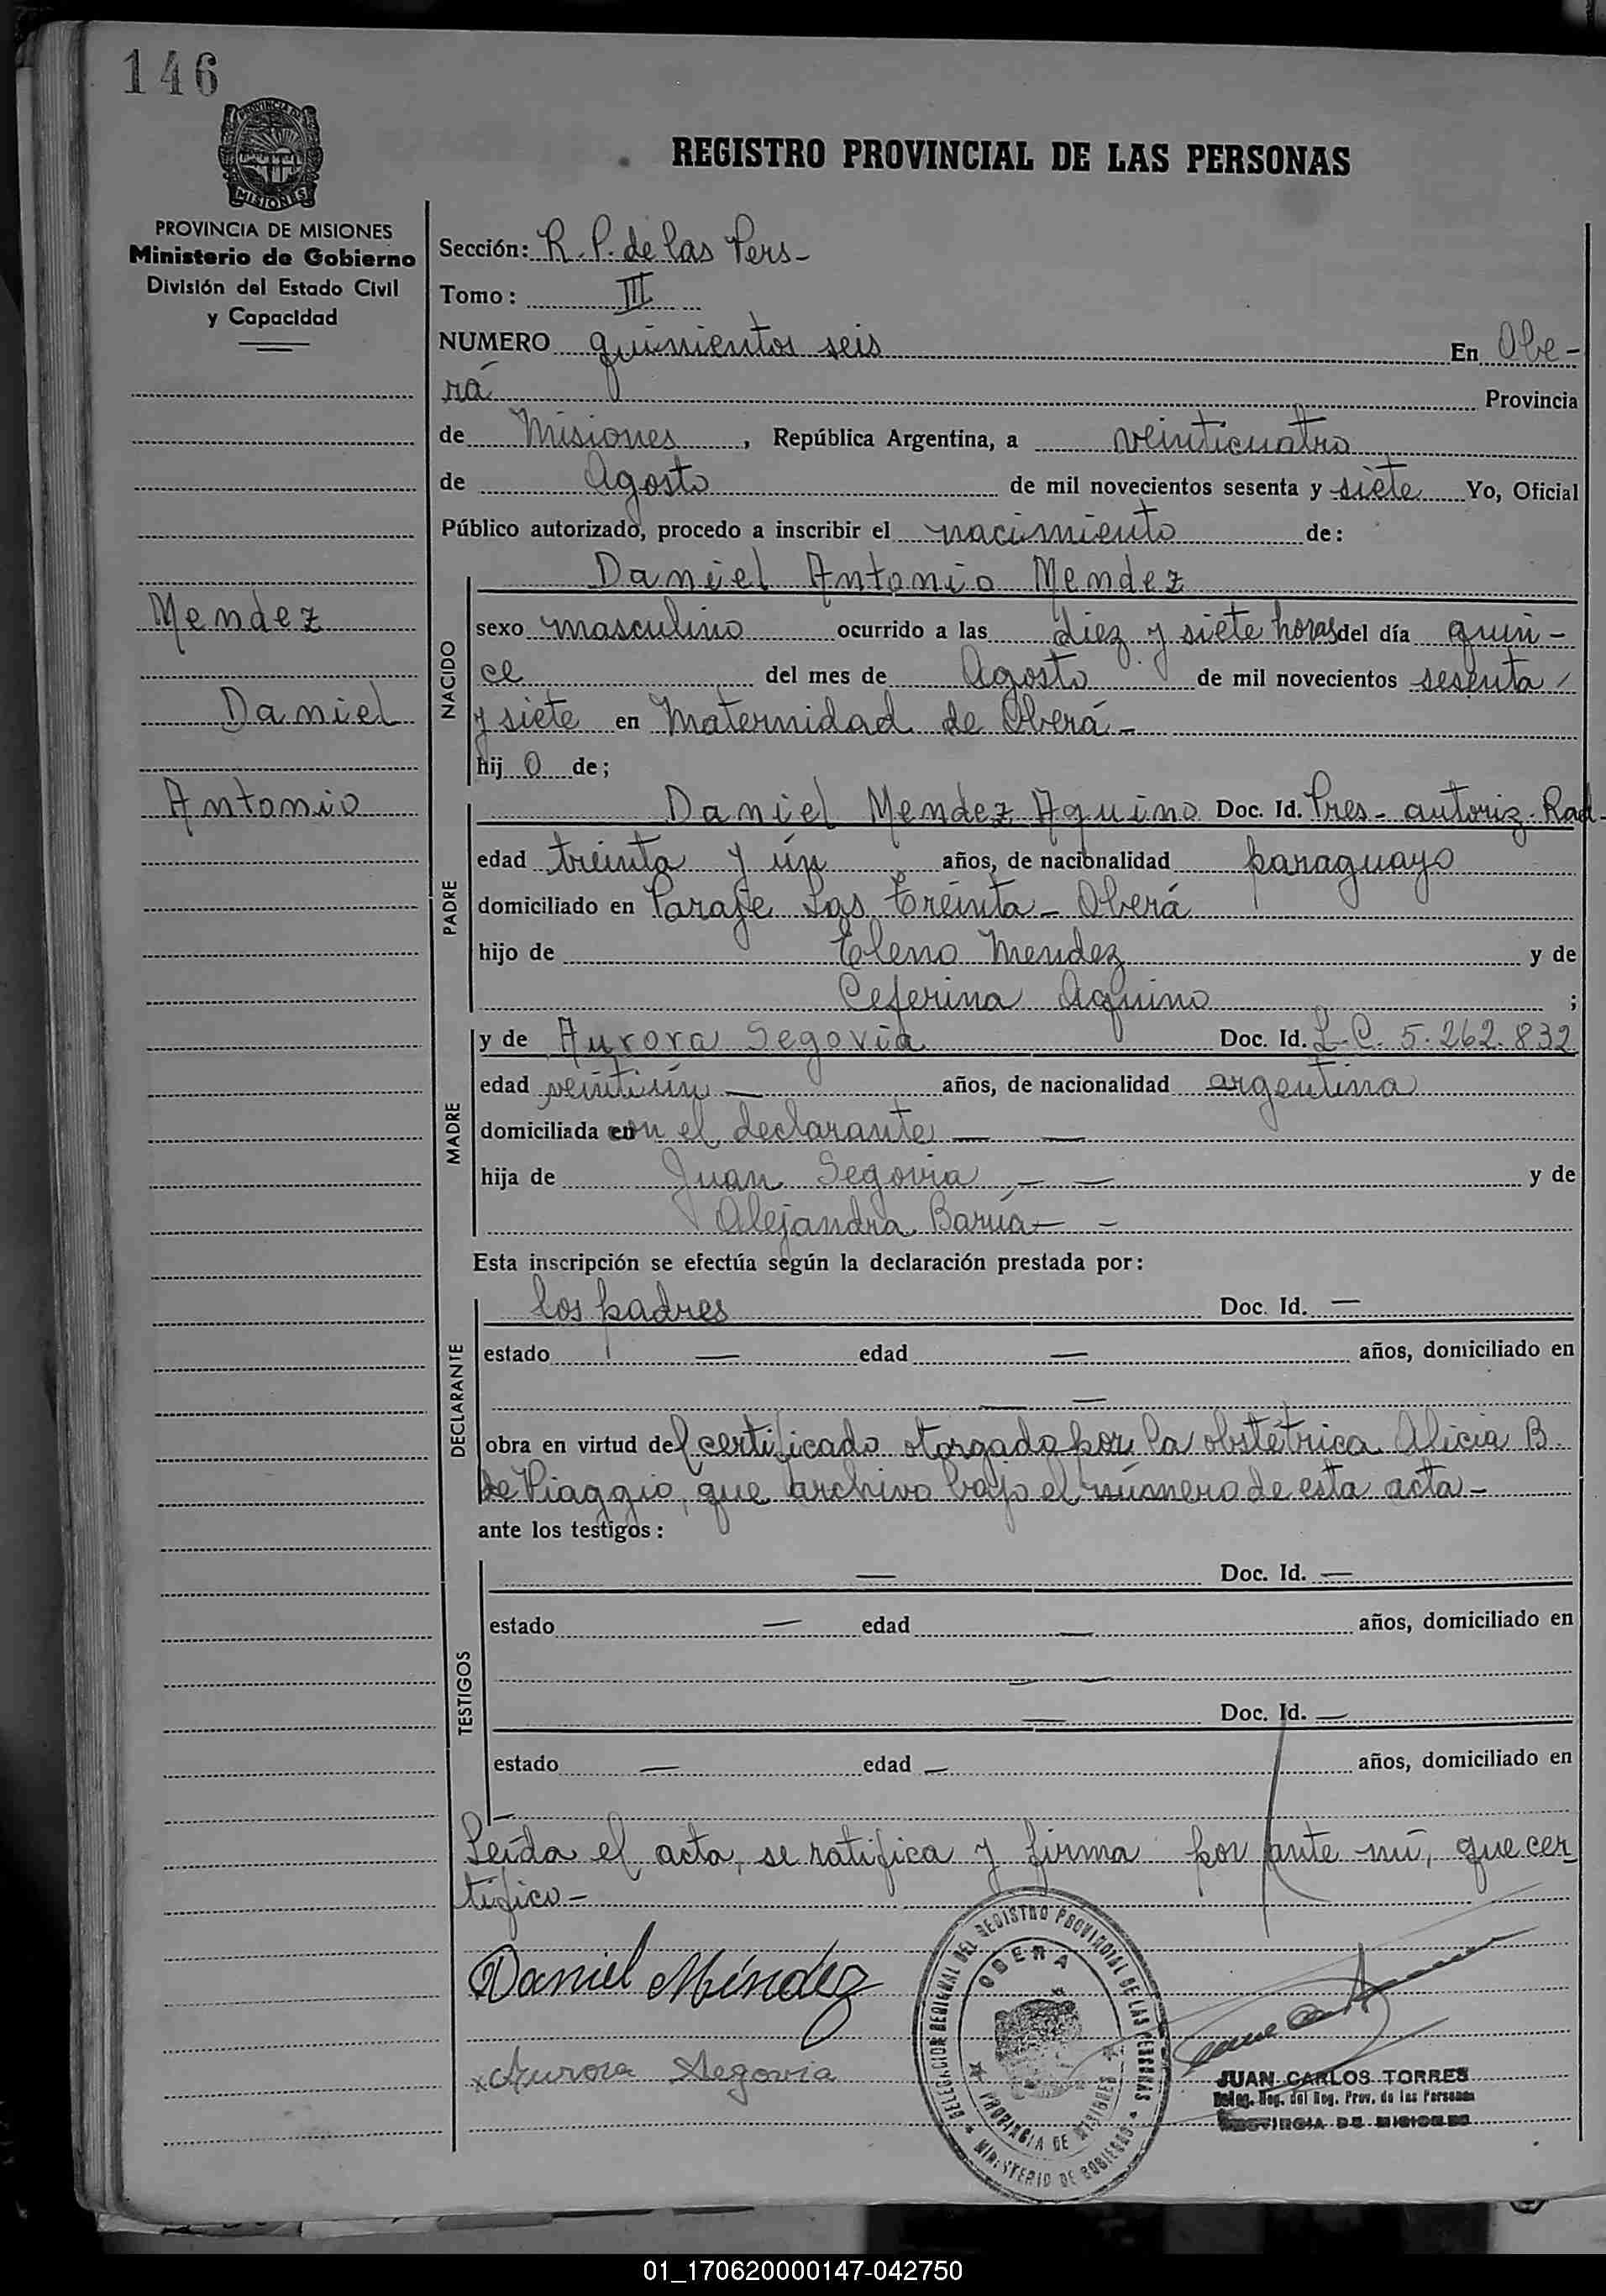 146
PROVINCIA DE
MISIONES
PROVINCIA DE MISIONES
Ministerio de Gobierno
División del Estado Civil
y Capacidad
Mendez
Daniel
Antonio
REGISTRO PROVINCIAL DE LAS PERSONAS
Sección: R. P. de las Pers-
Tomo: III
NUMERO quinientos seis En Obe-
rá Provincia
de Misiones, República Argentina, a veinticuatro
de Agosto de mil novecientos sesenta y siete Yo, Oficial
Público autorizado, procedo a inscribir el nacimiento de:
Daniel Antonio Mendez
NACIDO
sexo masculino ocurrido a las diez y siete horas del día quin-
ce del mes de Agosto de mil novecientos sesenta
y siete en Maternidad de Oberá-
hij o de;
PADRE
Daniel Mendez Aquino Doc. Id. Pres- autoriz. Rad-
edad treinta y ún años, de nacionalidad paraguayo
domiciliado en Paraje Las Treinta- Oberá
hijo de Eleno Mendez y de
Ceferina Aquino ;
MADRE
y de Aurora Segovia Doc. Id. L.C. 5.262.832
edad veintiún — años, de nacionalidad argentina
domiciliada en con el declarante — —
hija de Juan Segovia — — y de
Alejandra Barúa — —
Esta inscripción se efectúa según la declaración prestada por:
DECLARANTE
los padres Doc. Id. —
estado — edad — años, domiciliado en
— —
obra en virtud del certificado otorgado por la obstétrica Alicia B.
de Piaggio, que archivo bajo el número de esta acta-
ante los testigos:
TESTIGOS
— Doc. Id. —
estado — edad — años, domiciliado en
— —
— Doc. Id. —
estado — edad — años, domiciliado en
—
Leída el acta, se ratifica y firma por ante mí, que cer
tifico-
Daniel Méndez
x Aurora Segovia
DELEGACION REGIONAL DEL REGISTRO PROVINCIAL DE LAS PERSONAS
OBERA
PROVINCIA DE MISIONES
MINISTERIO DE GOBIERNO
JUAN CARLOS TORRES
Deleg. Reg. del Reg. Prov. de las Personas
PROVINCIA DE MISIONES
01_170620000147-042750